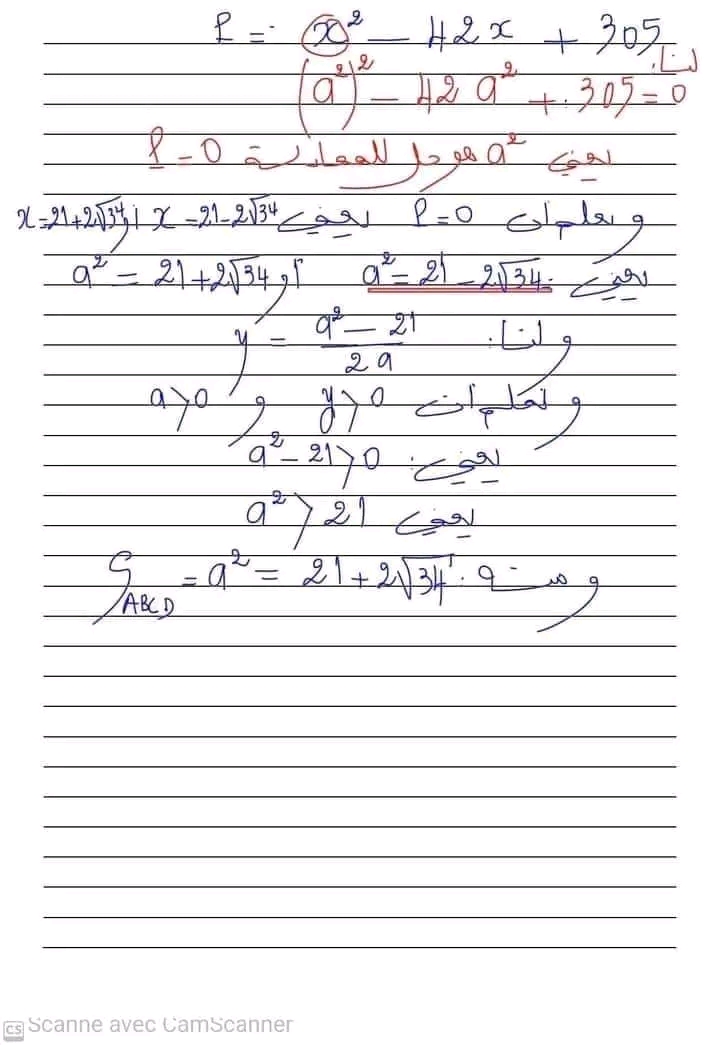 P = x² - 42x + 305
لنا:
(a²)² - 42 a² + 305 = 0
يعني a² هو حل للمعادلة P = 0
ونعلم ان P = 0 يعني x = 21 - 2√34 أو x = 21 + 2√34
يعني a² = 21 - 2√34 أو a² = 21 + 2√34
ولنا: y = (a² - 21)/(2a)
ونعلم ان y > 0 و a > 0
يعني: a² - 21 > 0
يعني a² > 21
ومنه: S_ABCD = a² = 21 + 2√34
CS Scanné avec CamScanner